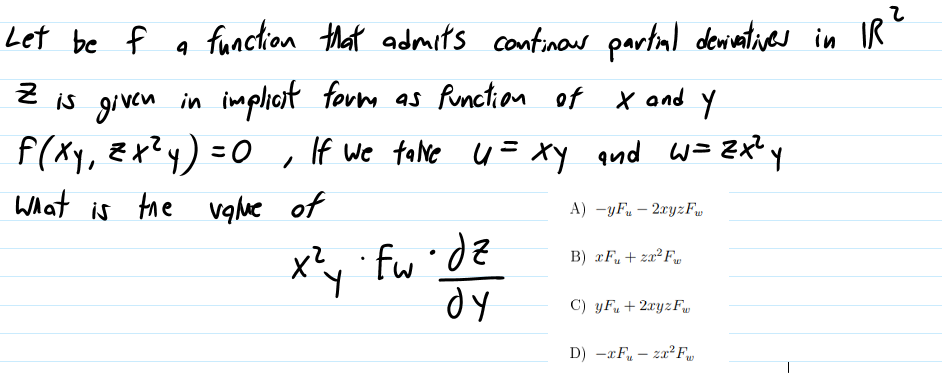 Let be f a function that admits continous partial derivatives in ℝ²
z is given in implicit form as function of x and y
F(xy, zx²y) = 0 , If we take u = xy and w = zx²y
What is the value of
x²y · Fw · ∂z/∂y
A) −yFᵤ − 2xyzF_w
B) xFᵤ + zx²F_w
C) yFᵤ + 2xyzF_w
D) −xFᵤ − zx²F_w